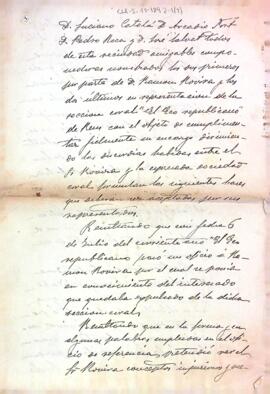 D. Luciano Catalá D. Arcadio Fort
D. Pedro Roca y D. José Salvat todos
de esta vecindad amigables compo-
nedores nombrados los dos primeros
por parte de D. Ramon Rovira y los
dos ultimos en representacion de la
seccion coral "El Eco republicano"
de Reus con el objeto de cumplimen-
tar fielmente su encargo dirimien-
do las discordias habidas entre el
Sr. Rovira y la espresada sociedad
coral formulan las siguientes bases
que por sus
representados.
Resultando que con fecha 6
de Julio del corriente año "El Eco
republicano" pasó un oficio á Ra-
mon Rovira por el cual se ponia
en conocimiento del interesado
que quedaba espulsado de la dicha
seccion coral.
Resultando que en la forma y en
algunas palabras empleadas en el ofi-
cio de referencia pretendió ver el
Sr. Rovira conceptos injuriosos y